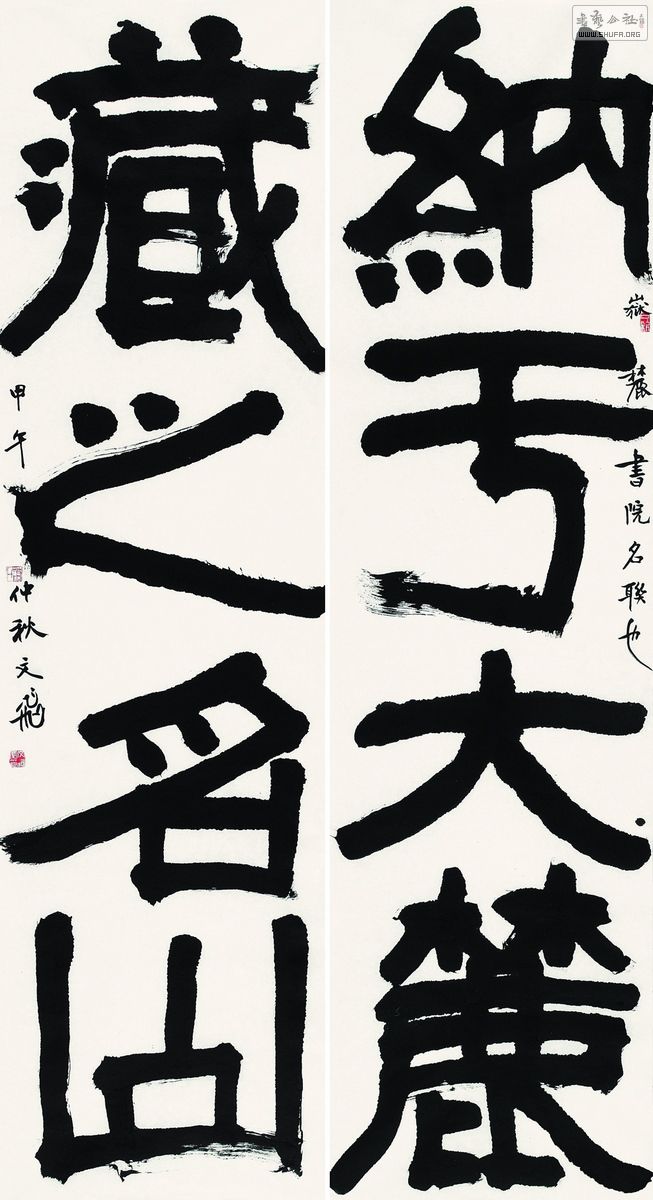 納于大麓
嶽麓書院名聯也
藏之名山
甲午仲秋文飛
書藝公社
WWW.SHUFA.ORG